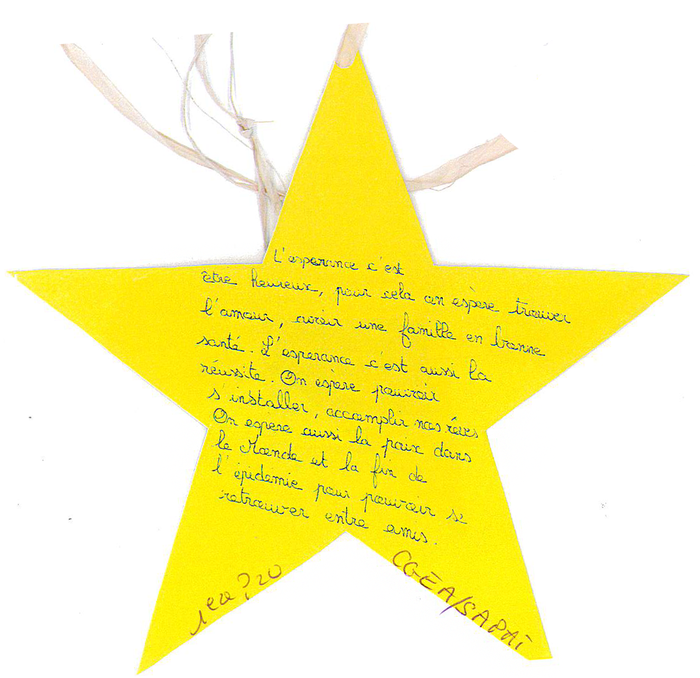 L'esperance c'est
être heureux, pour cela on espère trouver
l'amour, avoir une famille en bonne
santé. L'esperance c'est aussi la
réussite. On espère pouvoir
s'installer, accomplir nos rêves
On espere aussi la paix dans
le Monde et la fin de
l'épidemie pour pouvoir se
retrouver entre amis.
CGEA/SAPAT